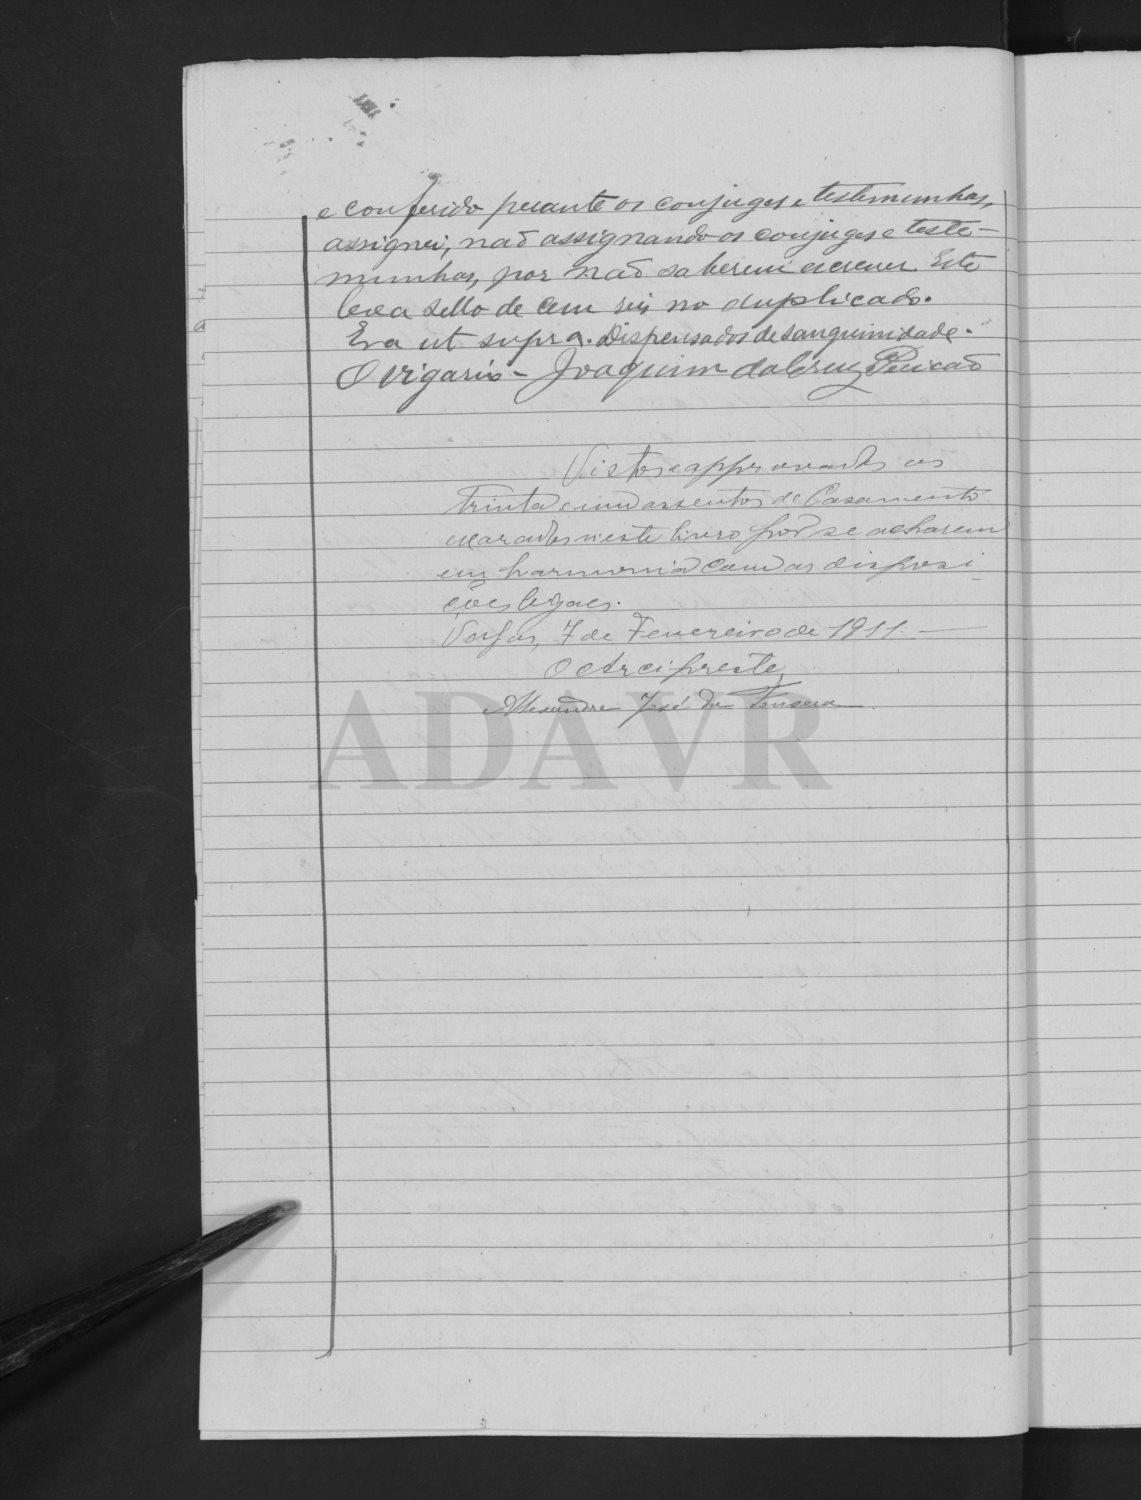 e conferido perante os conjuges e testemunhas,
assignei, não assignando os conjuges e teste-
munhas, por não saberem escrever. Este
leva sello de cem reis no duplicado.
Era ut supra. Dispensados de sanguinidade.
O vigario - Joaquim da Cruz Pericão
Vistos e approvados os
trinta e um assentos de Casamento
exarados n'este livro por se acharem
em harmonia com as disposi-
ções legaes.
Vousas, 7 de Fevereiro de 1911.
O Arcipreste
Alexandre José da Fonseca
ADAVR